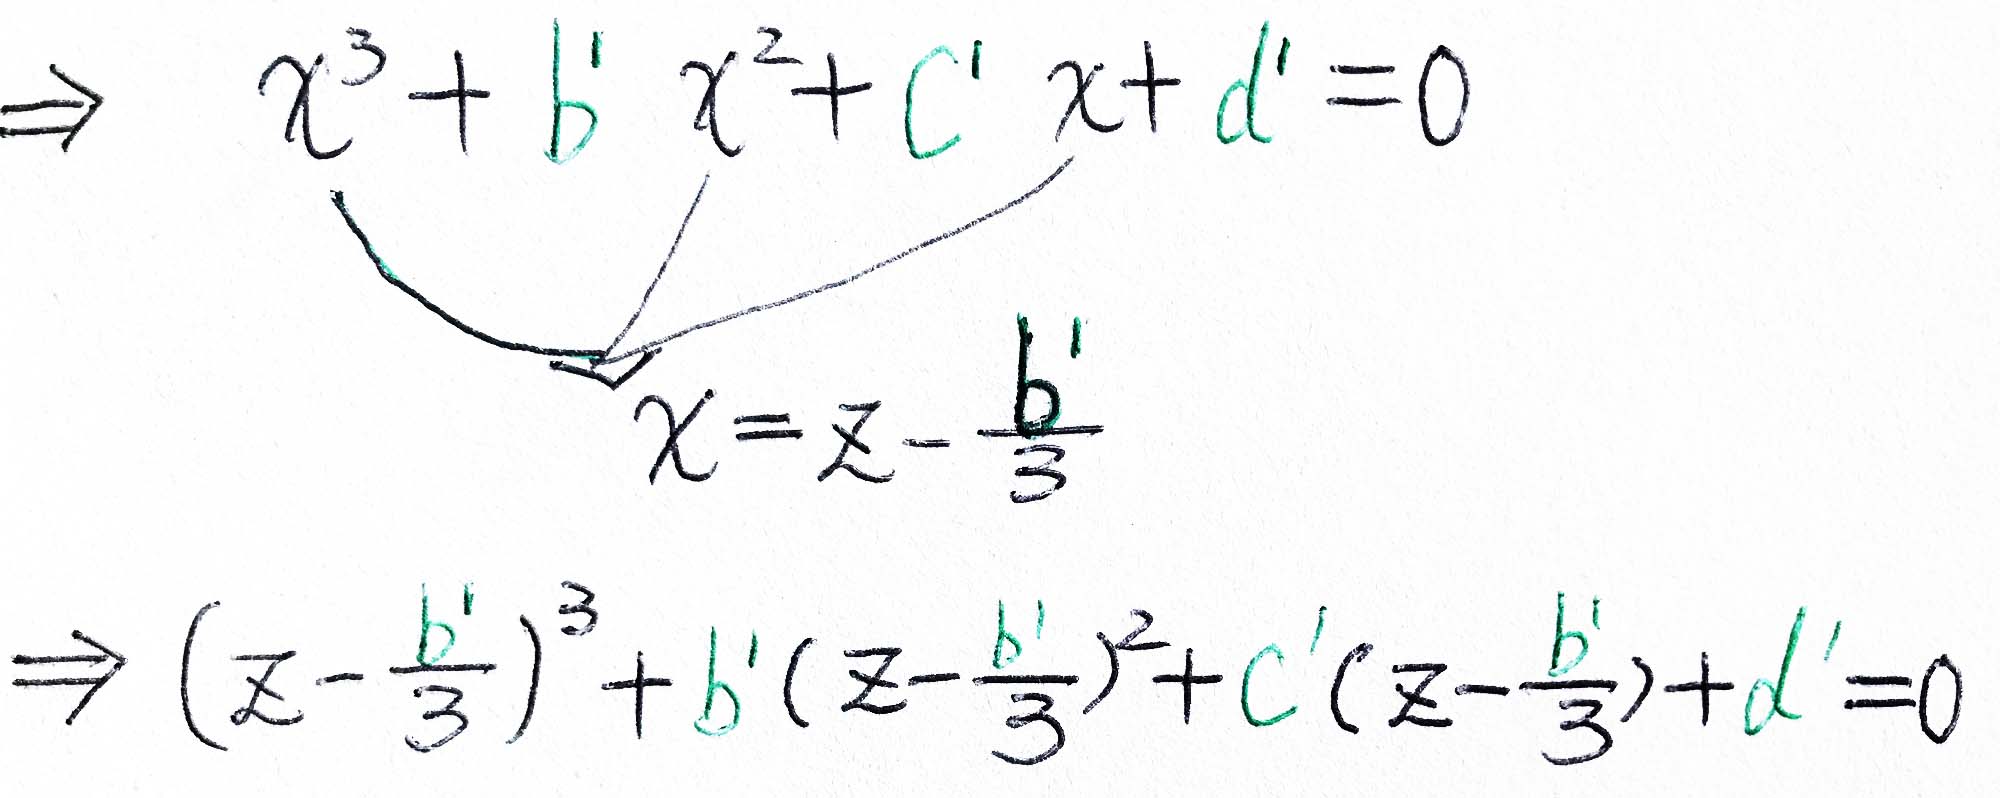 ⇒ x³ + b' x² + c' x + d' = 0
x = z - b'/3
⇒ (z - b'/3)³ + b'(z - b'/3)² + c'(z - b'/3) + d' = 0